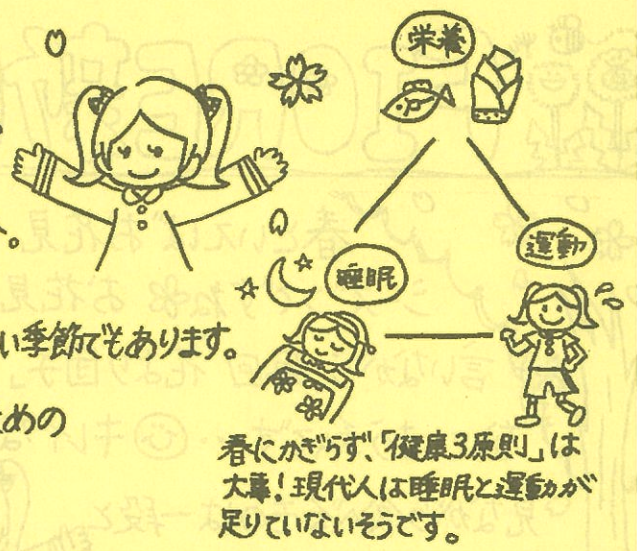 栄養
運動
睡眠
い季節でもあります。
ための
春にかぎらず、「健康3原則」は
大事！現代人は睡眠と運動が
足りていないそうです。